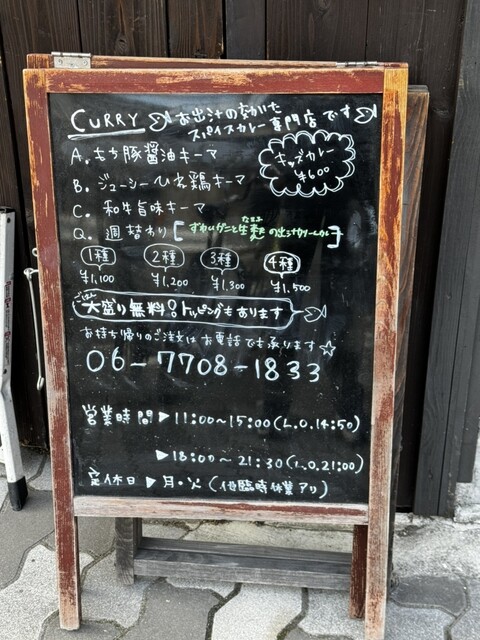 CURRY お出汁の効いた
スパイスカレー専門店です
キッズカレー
¥600
A. もち豚醤油キーマ
B. ジューシーひね鶏キーマ
C. 和牛旨味キーマ
Q. 週替わり [ずわいガニと生麩の出汁クリームカレー]
1種 2種 3種 4種
¥1,100 ¥1,200 ¥1,300 ¥1,500
ごはん大盛り無料!トッピングもあります
お持ち帰りのご注文はお電話でも承ります☆
06-7708-1833
営業時間 ▶ 11:00~15:00(L.O.14:50)
▶ 18:00~21:30(L.O.21:00)
定休日 ▶ 月・火(他臨時休業アリ)